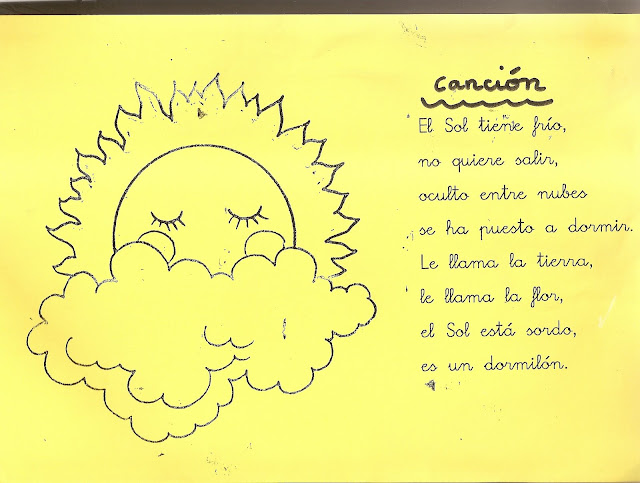 Canción
El Sol tiene frío,
no quiere salir,
oculto entre nubes
se ha puesto a dormir.
Le llama la tierra,
le llama la flor,
el Sol está sordo,
es un dormilón.